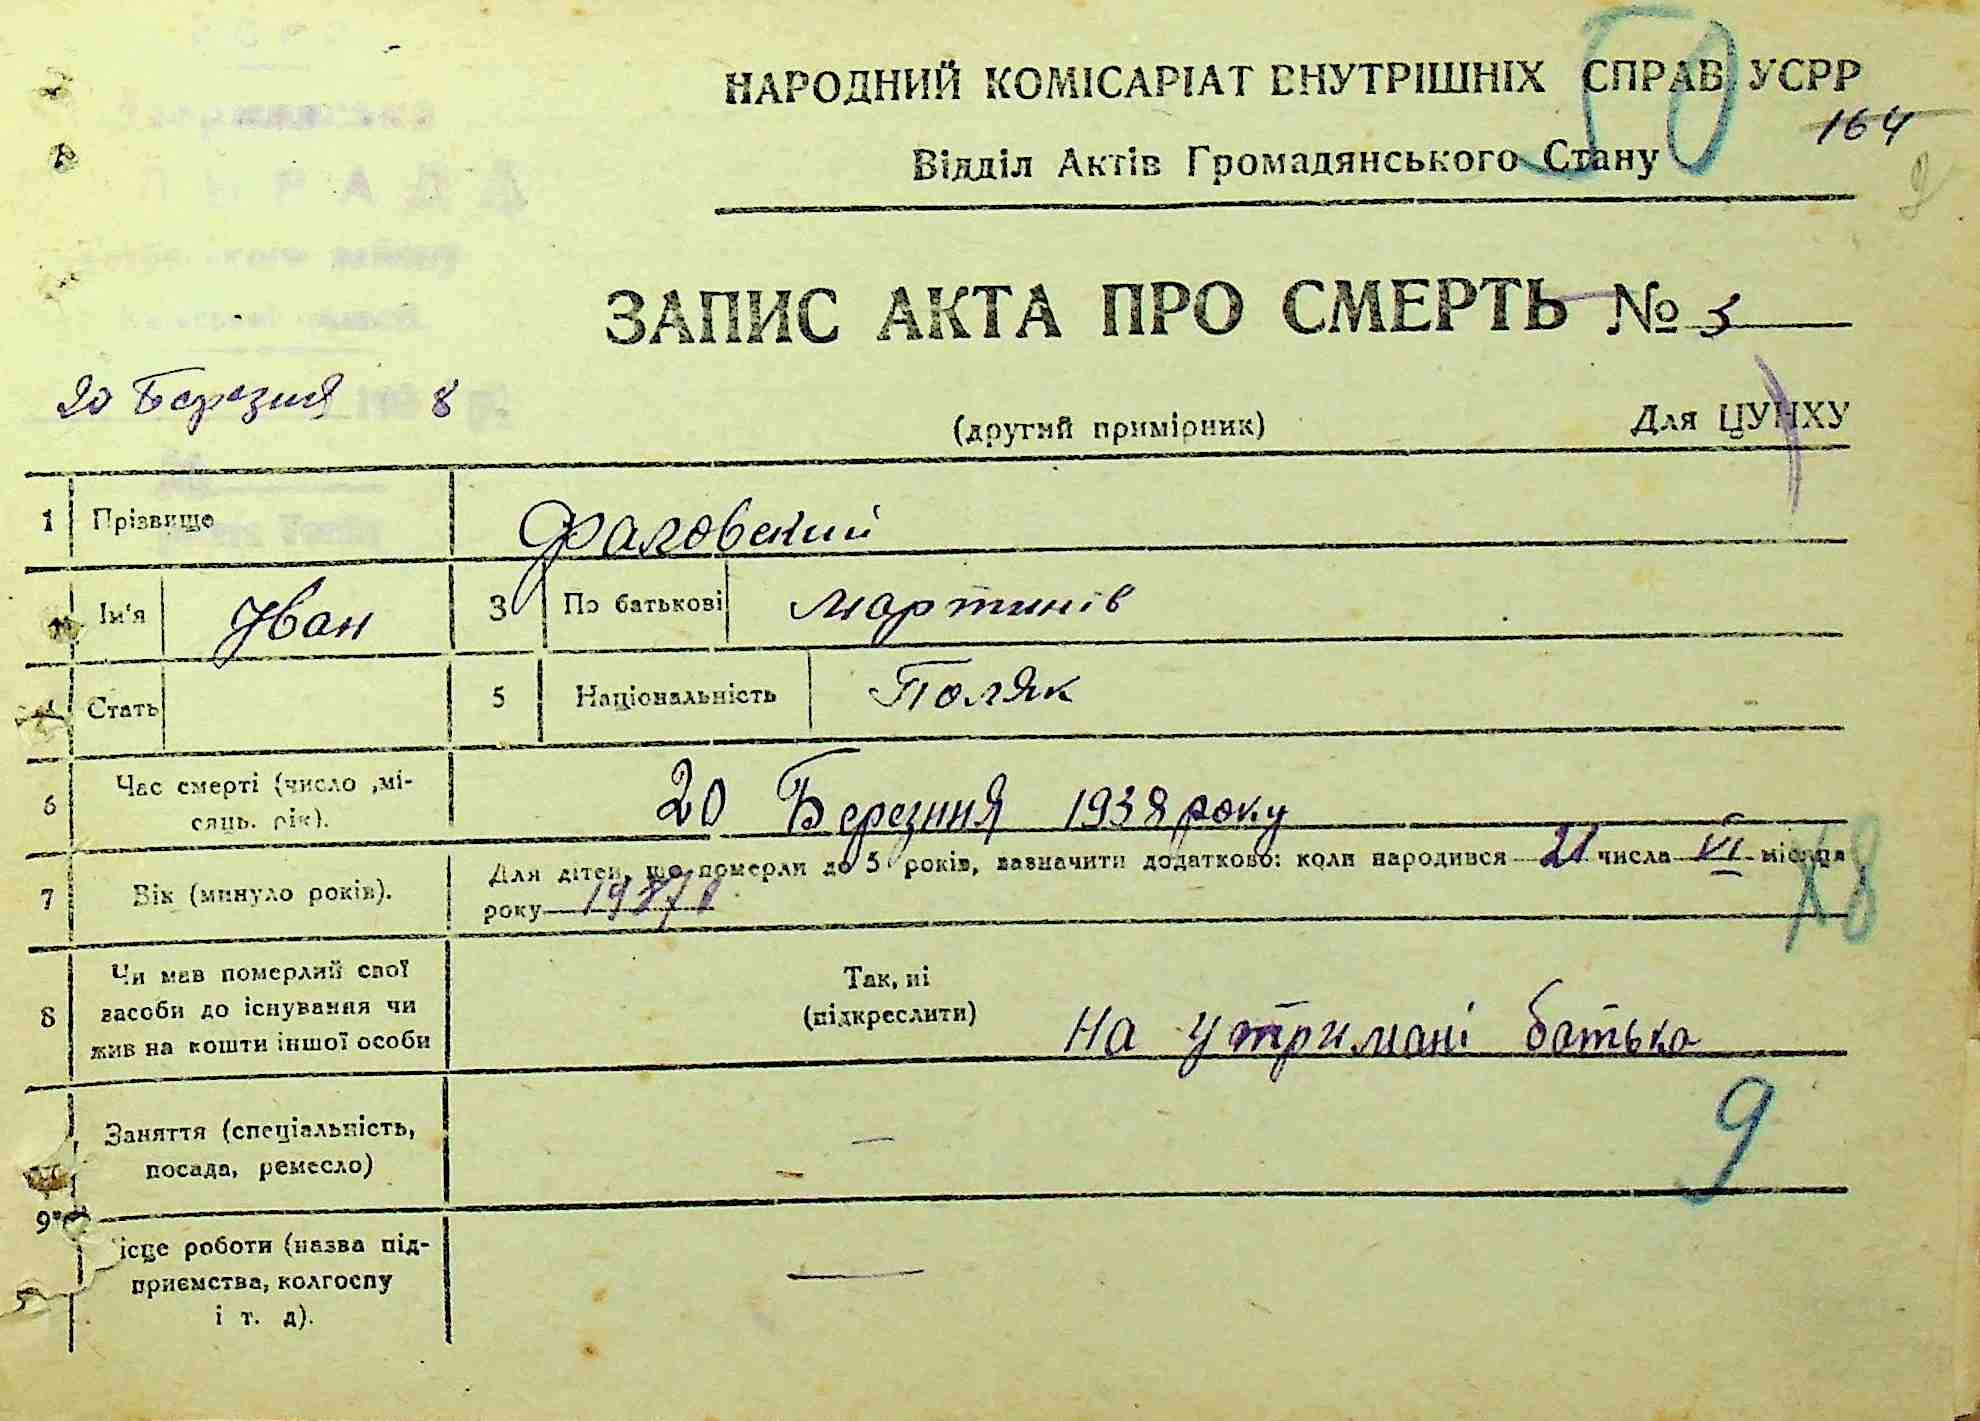 50
НАРОДНИЙ КОМІСАРІАТ ВНУТРІШНІХ СПРАВ УСРР
164
Відділ Актів Громадянського Стану
ЗАПИС АКТА ПРО СМЕРТЬ № 3
20 Березня 8
(другий примірник) Для ЦУНХУ
1 Прізвище Фаловский
Ім'я Іван 3 По батькові Мартинів
Стать 5 Національність Поляк
6 Час смерті (число ,мі-
сяць. рік).
20 Березння 1938 року
7 Вік (минуло років).
Для дітей, що померли до 5 років, зазначити додатково: коли народився 21 числа VI місяця
року
8 Чи мав померлий свої
засоби до існування чи
жив на кошти іншої особи
Так, ні
(підкреслити)
На утримані батька
9
Заняття (спеціальність,
посада, ремесло) —
9
ісце роботи (назва під-
приємства, колгоспу
і т. д). —